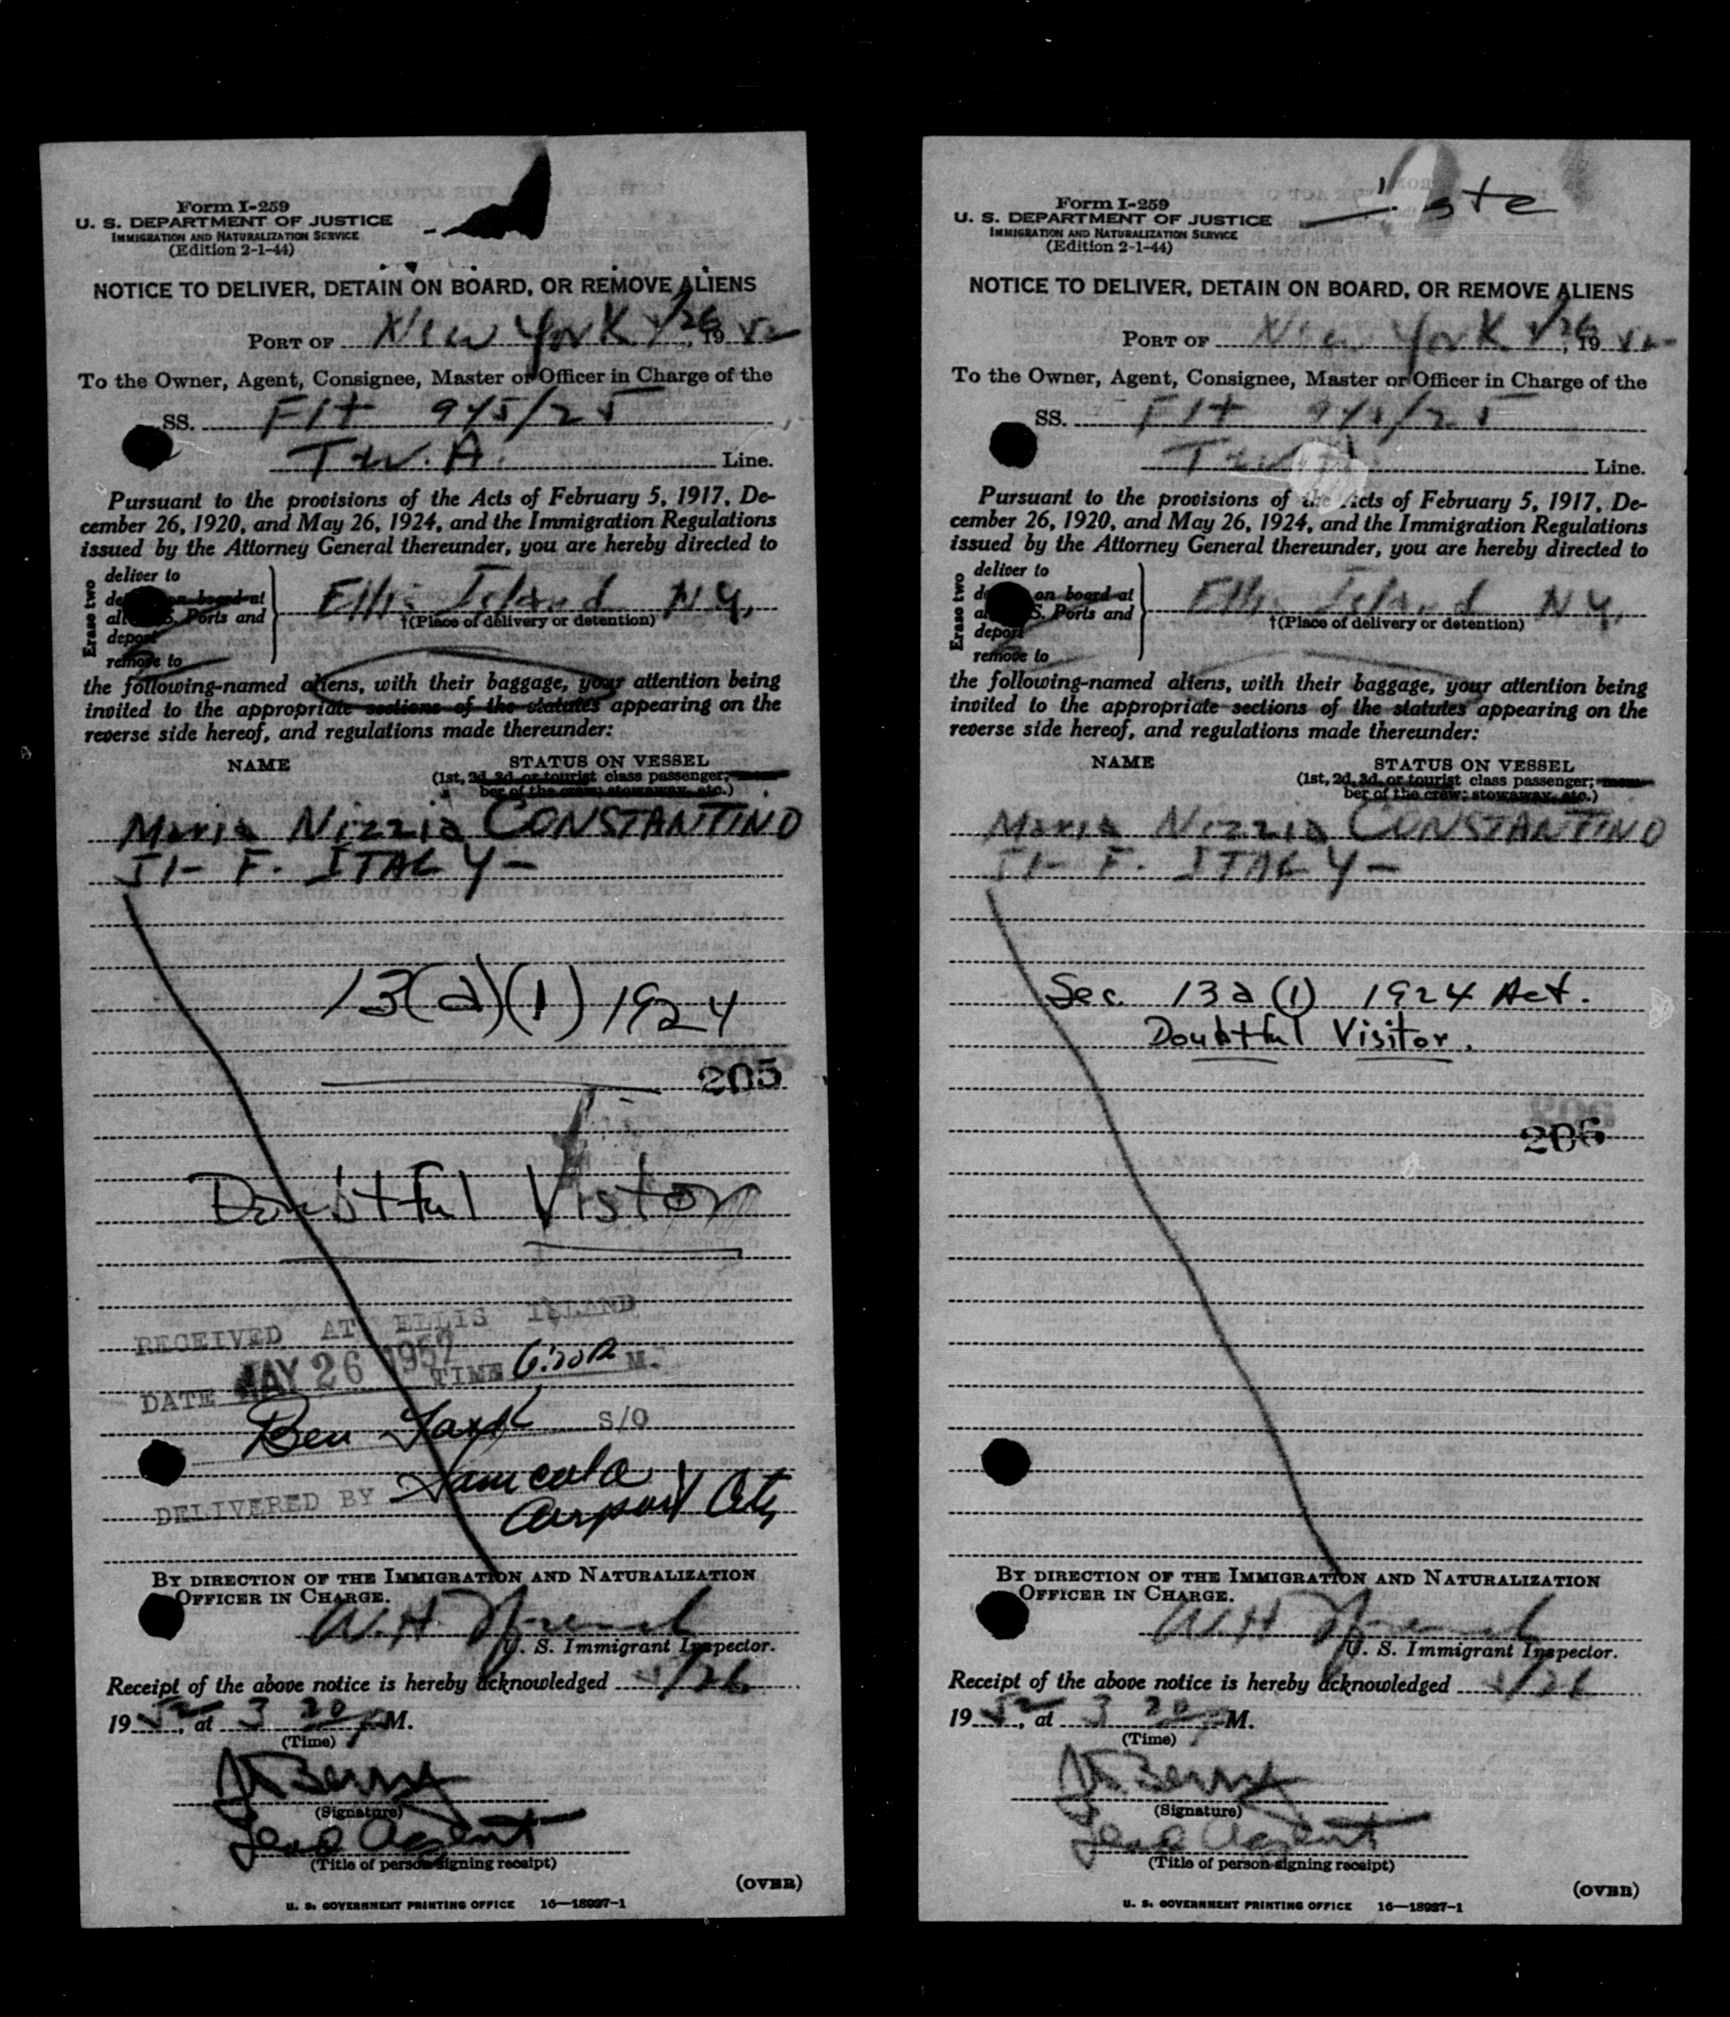 Form I-259
U. S. DEPARTMENT OF JUSTICE
IMMIGRATION AND NATURALIZATION SERVICE
(Edition 2-1-44)
NOTICE TO DELIVER, DETAIN ON BOARD, OR REMOVE ALIENS
PORT OF New York 5/26, 1952
To the Owner, Agent, Consignee, Master or Officer in Charge of the
SS. Flt 945/25
T.W.A. Line.
Pursuant to the provisions of the Acts of February 5, 1917, De-
cember 26, 1920, and May 26, 1924, and the Immigration Regulations
issued by the Attorney General thereunder, you are hereby directed to
Erase two
deliver to
on board at
S. Ports and
deport
remove to
Ellis Island N.Y.
†(Place of delivery or detention)
the following-named aliens, with their baggage, your attention being
invited to the appropriate sections of the statutes appearing on the
reverse side hereof, and regulations made thereunder:
NAME STATUS ON VESSEL
(1st, 2d, 3d, or tourist class passenger; mem-
ber of the crew; stowaway, etc.)
Maria Nizzia CONSTANTINO
51- F. ITALY-
13(a)(1) 1924
205
Doubtful Vistor
RECEIVED AT ELLIS ISLAND
DATE MAY 26 1952 TIME M.
Ben S/O
DELIVERED BY
Airport
BY DIRECTION OF THE IMMIGRATION AND NATURALIZATION
OFFICER IN CHARGE.
W.H.
U. S. Immigrant Inspector.
Receipt of the above notice is hereby acknowledged 5/26
1952, at 3 20 P M.
(Time)
Berry
(Signature)
Lead Agent
(Title of person signing receipt)
(OVER)
U. S. GOVERNMENT PRINTING OFFICE 16—18927-1
Form I-259
U. S. DEPARTMENT OF JUSTICE
IMMIGRATION AND NATURALIZATION SERVICE
(Edition 2-1-44)
NOTICE TO DELIVER, DETAIN ON BOARD, OR REMOVE ALIENS
PORT OF New York 5/26, 1952
To the Owner, Agent, Consignee, Master or Officer in Charge of the
SS. Flt 945/25
T.W.A. Line.
Pursuant to the provisions of the Acts of February 5, 1917, De-
cember 26, 1920, and May 26, 1924, and the Immigration Regulations
issued by the Attorney General thereunder, you are hereby directed to
Erase two
deliver to
on board at
S. Ports and
deport
remove to
Ellis Island N.Y.
†(Place of delivery or detention)
the following-named aliens, with their baggage, your attention being
invited to the appropriate sections of the statutes appearing on the
reverse side hereof, and regulations made thereunder:
NAME STATUS ON VESSEL
(1st, 2d, 3d, or tourist class passenger; mem-
ber of the crew; stowaway, etc.)
Maria Nizzia CONSTANTINO
51- F. ITALY-
Sec. 13a(1) 1924 Act.
Doubtful Visitor.
206
BY DIRECTION OF THE IMMIGRATION AND NATURALIZATION
OFFICER IN CHARGE.
W.H.
U. S. Immigrant Inspector.
Receipt of the above notice is hereby acknowledged 5/26
1952, at 3 20 P M.
(Time)
Berry
(Signature)
Lead Agent
(Title of person signing receipt)
(OVER)
U. S. GOVERNMENT PRINTING OFFICE 16—18927-1